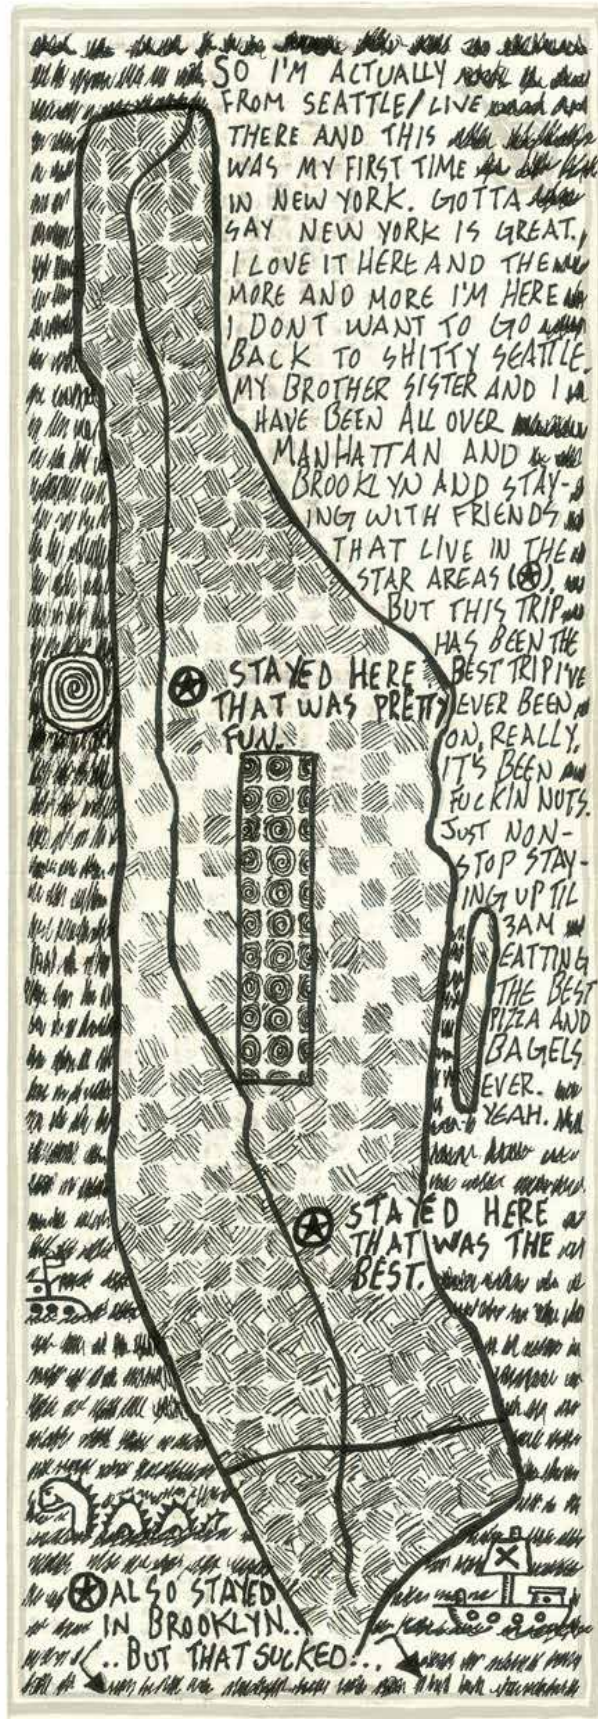 SO I'M ACTUALLY
FROM SEATTLE/LIVE
THERE AND THIS
WAS MY FIRST TIME
IN NEW YORK. GOTTA
SAY NEW YORK IS GREAT.
I LOVE IT HERE AND THE
MORE AND MORE I'M HERE
I DONT WANT TO GO
BACK TO SHITTY SEATTLE.
MY BROTHER SISTER AND I
HAVE BEEN ALL OVER
MANHATTAN AND
BROOKLYN AND STAY-
ING WITH FRIENDS
THAT LIVE IN THE
STAR AREAS (★).
BUT THIS TRIP
HAS BEEN THE
BEST TRIP I'VE
EVER BEEN
ON, REALLY.
IT'S BEEN
FUCKIN NUTS.
JUST NON-
STOP STAY-
ING UP TIL
3AM
EATTING
THE BEST
PIZZA AND
BAGELS
EVER.
YEAH.
STAYED HERE
THAT WAS PRETTY
FUN.
STAYED HERE
THAT WAS THE
BEST.
ALSO STAYED
IN BROOKLYN..
..BUT THAT SUCKED...